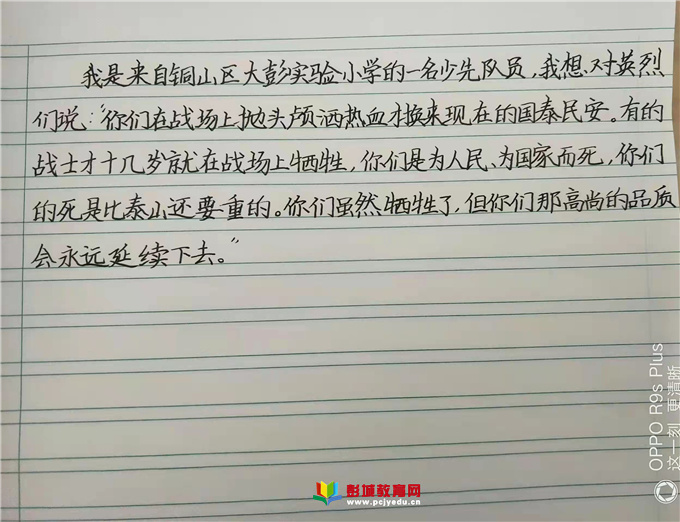 我是来自铜山区大彭实验小学的一名少先队员，我想对英烈
们说：“你们在战场上抛头颅洒热血才换来现在的国泰民安。有的
战士才十几岁就在战场上牺牲，你们是为人民、为国家而死，你们
的死是比泰山还要重的。你们虽然牺牲了，但你们那高尚的品质
会永远延续下去。”
OPPO R9s Plus
这一刻 更清晰
彭城教育网
www.pcjyedu.cn